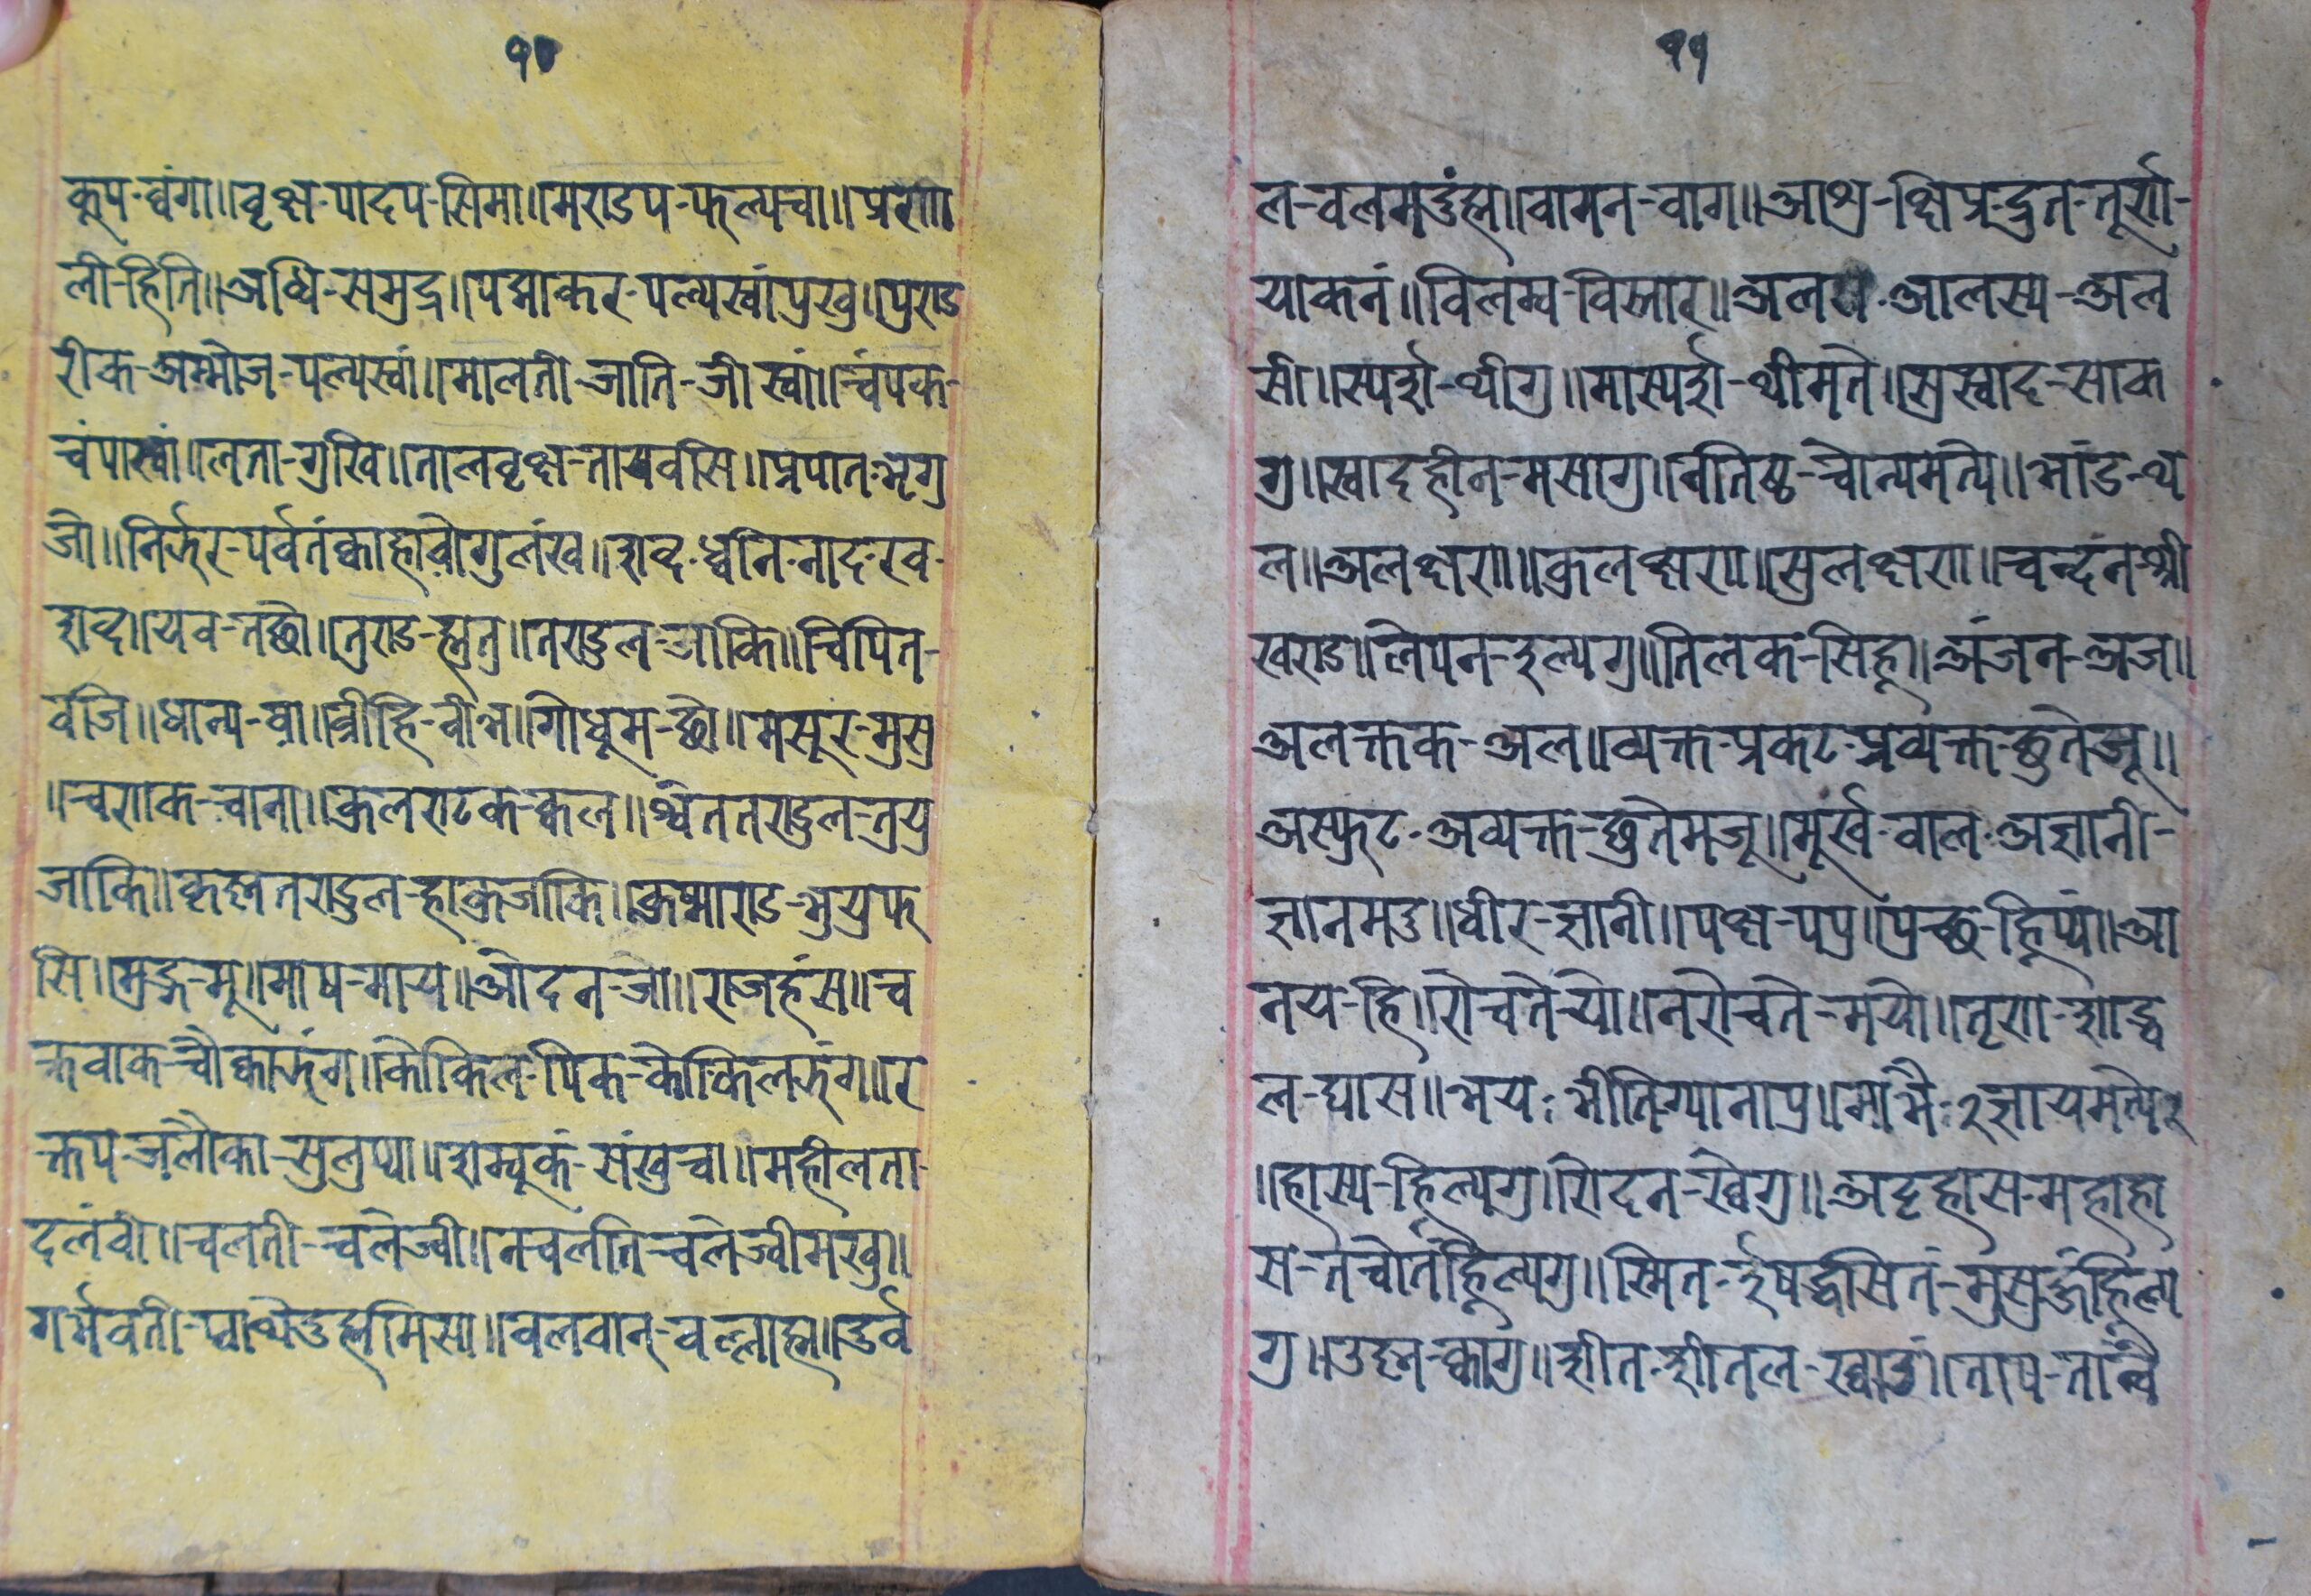 १०
कूप-त्वंगा॥वृक्ष-पादप-सिमा॥मण्डप-फल्पचा॥प्रणा
ली-हिति॥अब्धि-समुद्र॥पद्माकर-पल्यस्वांपुखु॥पुण्ड
रीक-अम्भोज-पल्यस्वां॥मालती-जाति-जीस्वां॥चंपक-
चंपास्वां॥लता-गुखि॥तालवृक्ष-तायवसि॥प्रपात-भृगु
जो॥निर्झर-पर्वतंक्वाहावोगुलंख॥शब्द-ध्वनि-नाद-रव-
शब्द॥यव-तछो॥तुण्ड-ह्मुतु॥तण्डुल-जाकि॥चिपित-
वजि॥धान्य-वा॥व्रीहि-वीभ॥गोधूम-छो॥मसूर-मुसु
॥चणक-चाना॥कुलण्टक-क्वल॥श्वेततण्डुल-तुयु
जाकि॥कृष्णतण्डुल-हाकुजाकि॥कुष्माण्ड-भुयुफ
सि॥मुद्ग-मू॥माष-माय॥ओदन-जो॥राजहंस॥च
क्रवाक-चौक्वाझंग॥कोकिल-पिक-कोकिलझंग॥र
क्तप-जलौका-सुलुप्या॥शम्बूक-संखुचा॥महीलता-
दलंवी॥चलती-चलेज्वी॥नचलति-चलेज्वीमखु॥
गर्भवती-प्वाथेडुह्ममिसा॥बलवान्-बल्लाह्म॥दुर्ब
११
ल-बलमदुंह्म॥वामन-वाग॥आशु-क्षिप्र-द्रुत-तूर्ण-
याकनं॥विलम्ब-विस्तार॥अलस-आलस्य-अल
सी॥स्पर्श-थीगु॥मास्पर्श-थीमते॥सुस्वाद-साक
गु॥स्वादहीन-मसागु॥वतिष्ठ-चोन्यमत्ये॥भांड-थ
ल॥अलक्षण॥कुलक्षण॥सुलक्षण॥चन्दन-श्री
खण्ड॥लेपन-इल्यगु॥तिलक-सिह्॥अंजन-अज॥
अलक्तक-अल॥व्यक्त-प्रकट-प्रव्यक्त-छुतेजू॥
अस्फुट-अव्यक्त-छुतेमजू॥मूर्ख-बाल-अज्ञानी-
ज्ञानमदु॥धीर-ज्ञानी॥पक्ष-पपु॥पुच्छ-ह्रिप्यं॥आ
नय-हि॥रोचते-यो॥नरोचते-मयो॥तृण-शाद्व
ल-घास॥भय-भीति-ग्यानापु॥माभैः२ज्ञायमत्ये२
॥हास्य-हिल्यगु॥रोदन-ख्वेगु॥अट्टहास-महाहा
स-तचोतंहिल्यगु॥स्मित-ईषद्धसितं-मुसुङ्कंहिल्य
गु॥उष्ण-क्वागु॥शीत-शीतल-ख्वाउं॥ताप-तान्वै